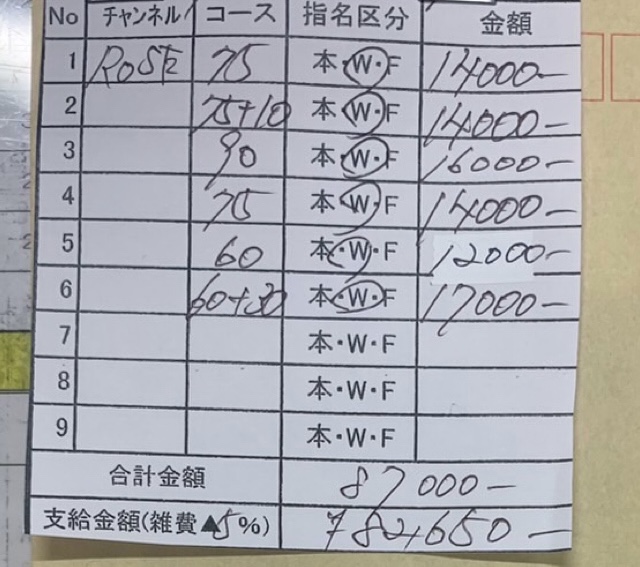 No チャンネル コース 指名区分 金額
1 ROSE 75 本・W・F 14000-
2 75+10 本・W・F 14000-
3 90 本・W・F 16000-
4 75 本・W・F 14000-
5 60 本・W・F 12000-
6 60+30 本・W・F 17000-
7 本・W・F
8 本・W・F
9 本・W・F
合計金額 87000-
支給金額(雑費▲5%)